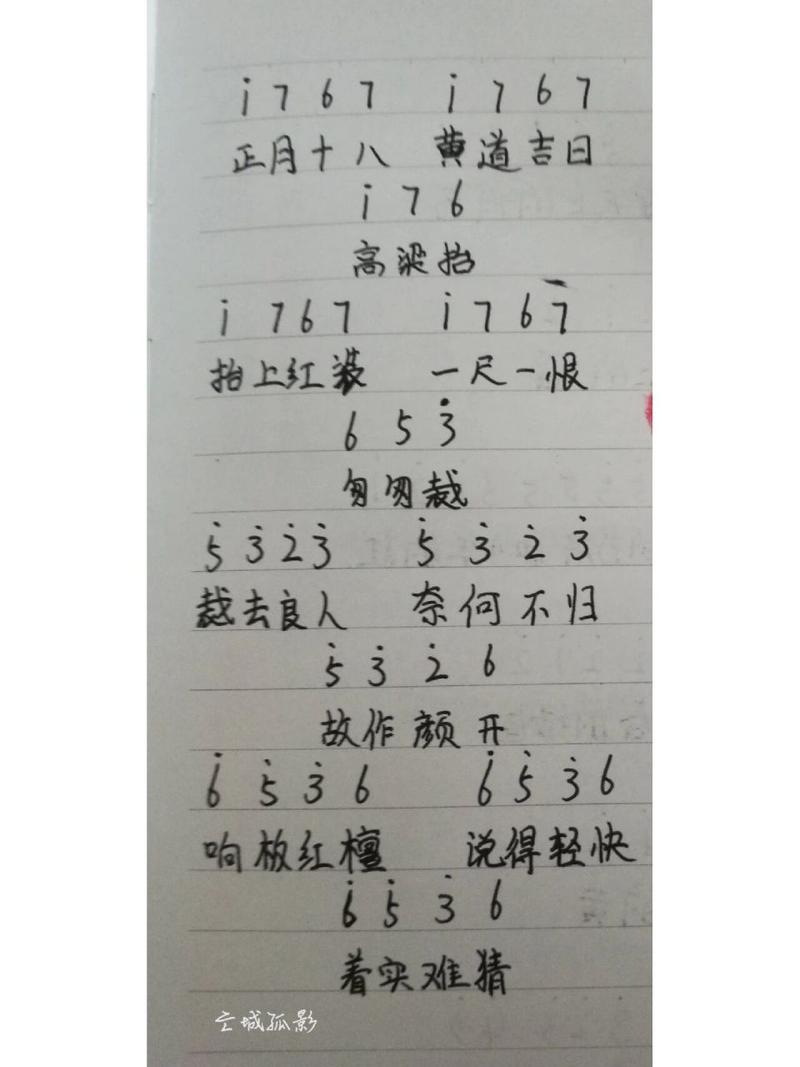 i 7 6 7 i 7 6 7
正月十八 黄道吉日
i 7 6
高梁抬
i 7 6 7 i 7 6 7
抬上红装 一尺一恨
6 5 3̇
匆匆裁
5̇ 3̇ 2̇ 3̇ 5̇ 3̇ 2̇ 3̇
裁去良人 奈何不归
5̇ 3̇ 2̇ 6
故作颜开
6̇ 5̇ 3̇ 6 6̇ 5̇ 3̇ 6
响板红檀 说得轻快
6̇ 5̇ 3̇ 6
着实难猜
空城孤影